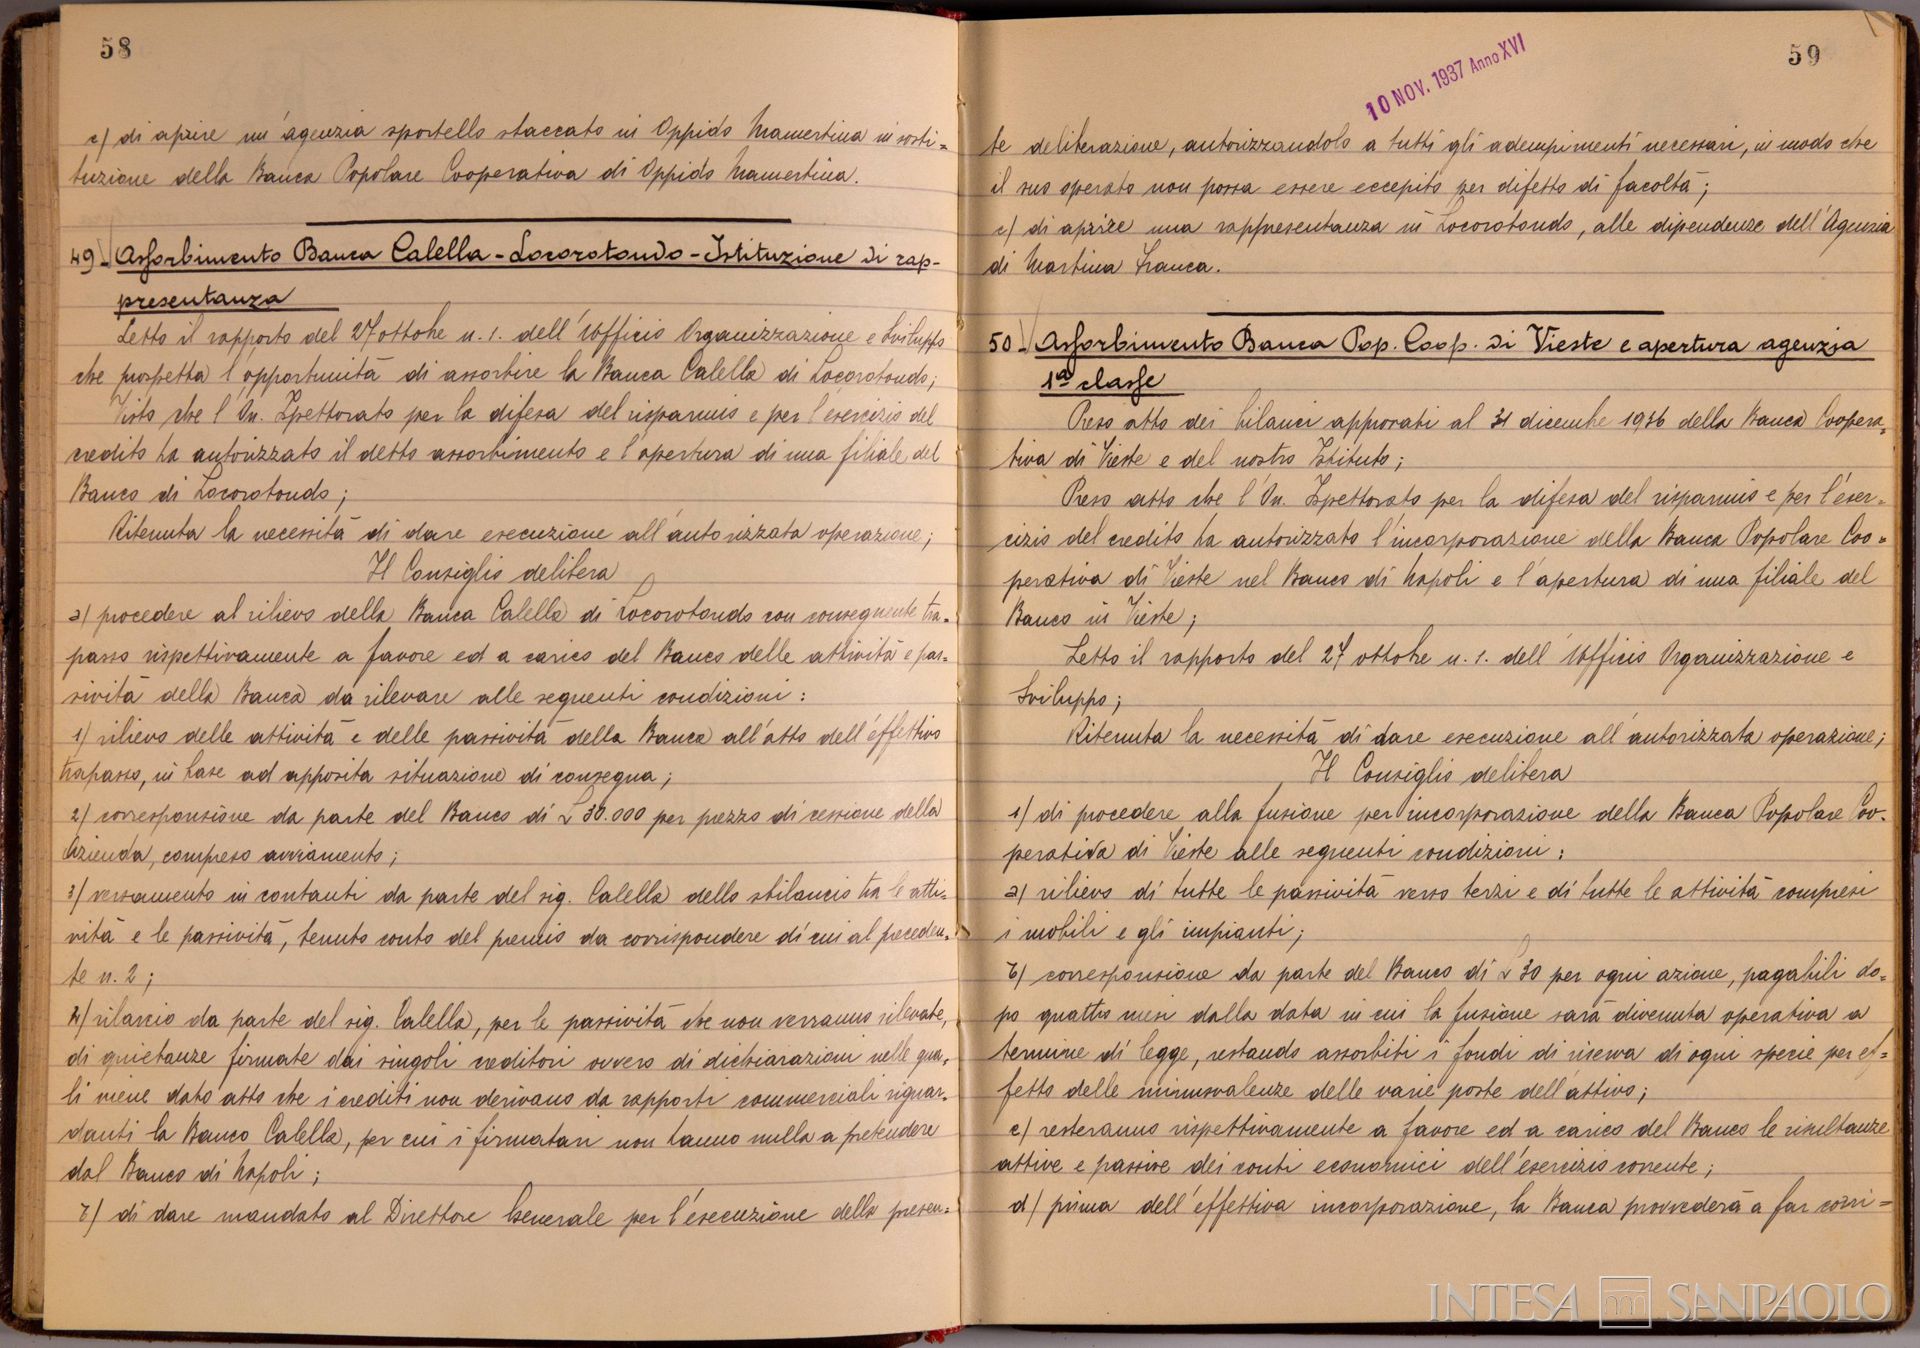 58
c) di aprire un'agenzia sportello staccato in Oppido Mamertina in sosti=
tuzione della Banca Popolare Cooperativa di Oppido Mamertina.
49_ Assorbimento Banca Calella - Locorotondo - Istituzione di rap-
presentanza
Letto il rapporto del 27 ottobre u.s. dell'Ufficio Organizzazione e Sviluppo
che prospetta l'opportunità di assorbire la Banca Calella di Locorotondo;
Visto che l'On. Ispettorato per la difesa del risparmio e per l'esercizio del
credito ha autorizzato il detto assorbimento e l'apertura di una filiale del
Banco di Locorotondo;
Ritenuta la necessità di dare esecuzione all'autorizzata operazione;
Il Consiglio delibera
a) procedere al rilievo della Banca Calella di Locorotondo con conseguente tra=
passo rispettivamente a favore ed a carico del Banco delle attività e pas=
sività della Banca da rilevare alle seguenti condizioni:
1) rilievo delle attività e delle passività della Banca all'atto dell'effettivo
trapasso, in base ad apposita situazione di consegna;
2) corresponsione da parte del Banco di £ 30.000 per prezzo di cessione della
Azienda, compreso avviamento;
3) versamento in contanti da parte del sig. Calella dello sbilancio tra le atti=
vità e le passività, tenuto conto del premio da corrispondere di cui al preceden=
te n. 2;
4) rilascio da parte del sig. Calella, per le passività che non verranno rilevate,
di quietanze firmate dai singoli creditori ovvero di dichiarazioni nelle qua=
li viene dato atto che i crediti non derivano da rapporti commerciali riguar=
danti la Banco Calella, per cui i firmatari non hanno nulla a pretendere
dal Banco di Napoli;
b) di dare mandato al Direttore Generale per l'esecuzione della presen=
10 NOV. 1937 Anno XVI
59
te deliberazione, autorizzandolo a tutti gli adempimenti necessari, in modo che
il suo operato non possa essere eccepito per difetto di facoltà;
c) di aprire una rappresentanza in Locorotondo, alle dipendenze dell'Agenzia
di Martina Franca.
50_ Assorbimento Banca Pop. Coop. di Vieste e apertura agenzia
1ª classe
Preso atto dei bilanci approvati al 31 dicembre 1936 della Banca Coopera=
tiva di Vieste e del nostro Istituto;
Preso atto che l'On. Ispettorato per la difesa del risparmio e per l'eser=
cizio del credito ha autorizzato l'incorporazione della Banca Popolare Coo=
perativa di Vieste nel Banco di Napoli e l'apertura di una filiale del
Banco in Vieste;
Letto il rapporto del 27 ottobre u.s. dell'Ufficio Organizzazione e
Sviluppo;
Ritenuta la necessità di dare esecuzione all'autorizzata operazione;
Il Consiglio delibera
1) di procedere alla fusione per incorporazione della Banca Popolare Coo-
perativa di Vieste alle seguenti condizioni:
a) rilievo di tutte le passività verso terzi e di tutte le attività compresi
i mobili e gli impianti;
b) corresponsione da parte del Banco di £ 30 per ogni azione, pagabili do=
po quattro mesi dalla data in cui la fusione sarà divenuta operativa a
termine di legge, restando assorbiti i fondi di riserva di ogni specie per ef=
fetto delle minusvalenze delle varie poste dell'attivo;
c) resteranno rispettivamente a favore ed a carico del Banco le risultanze
attive e passive dei conti economici dell'esercizio corrente;
d) prima dell'effettiva incorporazione, la Banca provvederà a far corri=
INTESA SANPAOLO